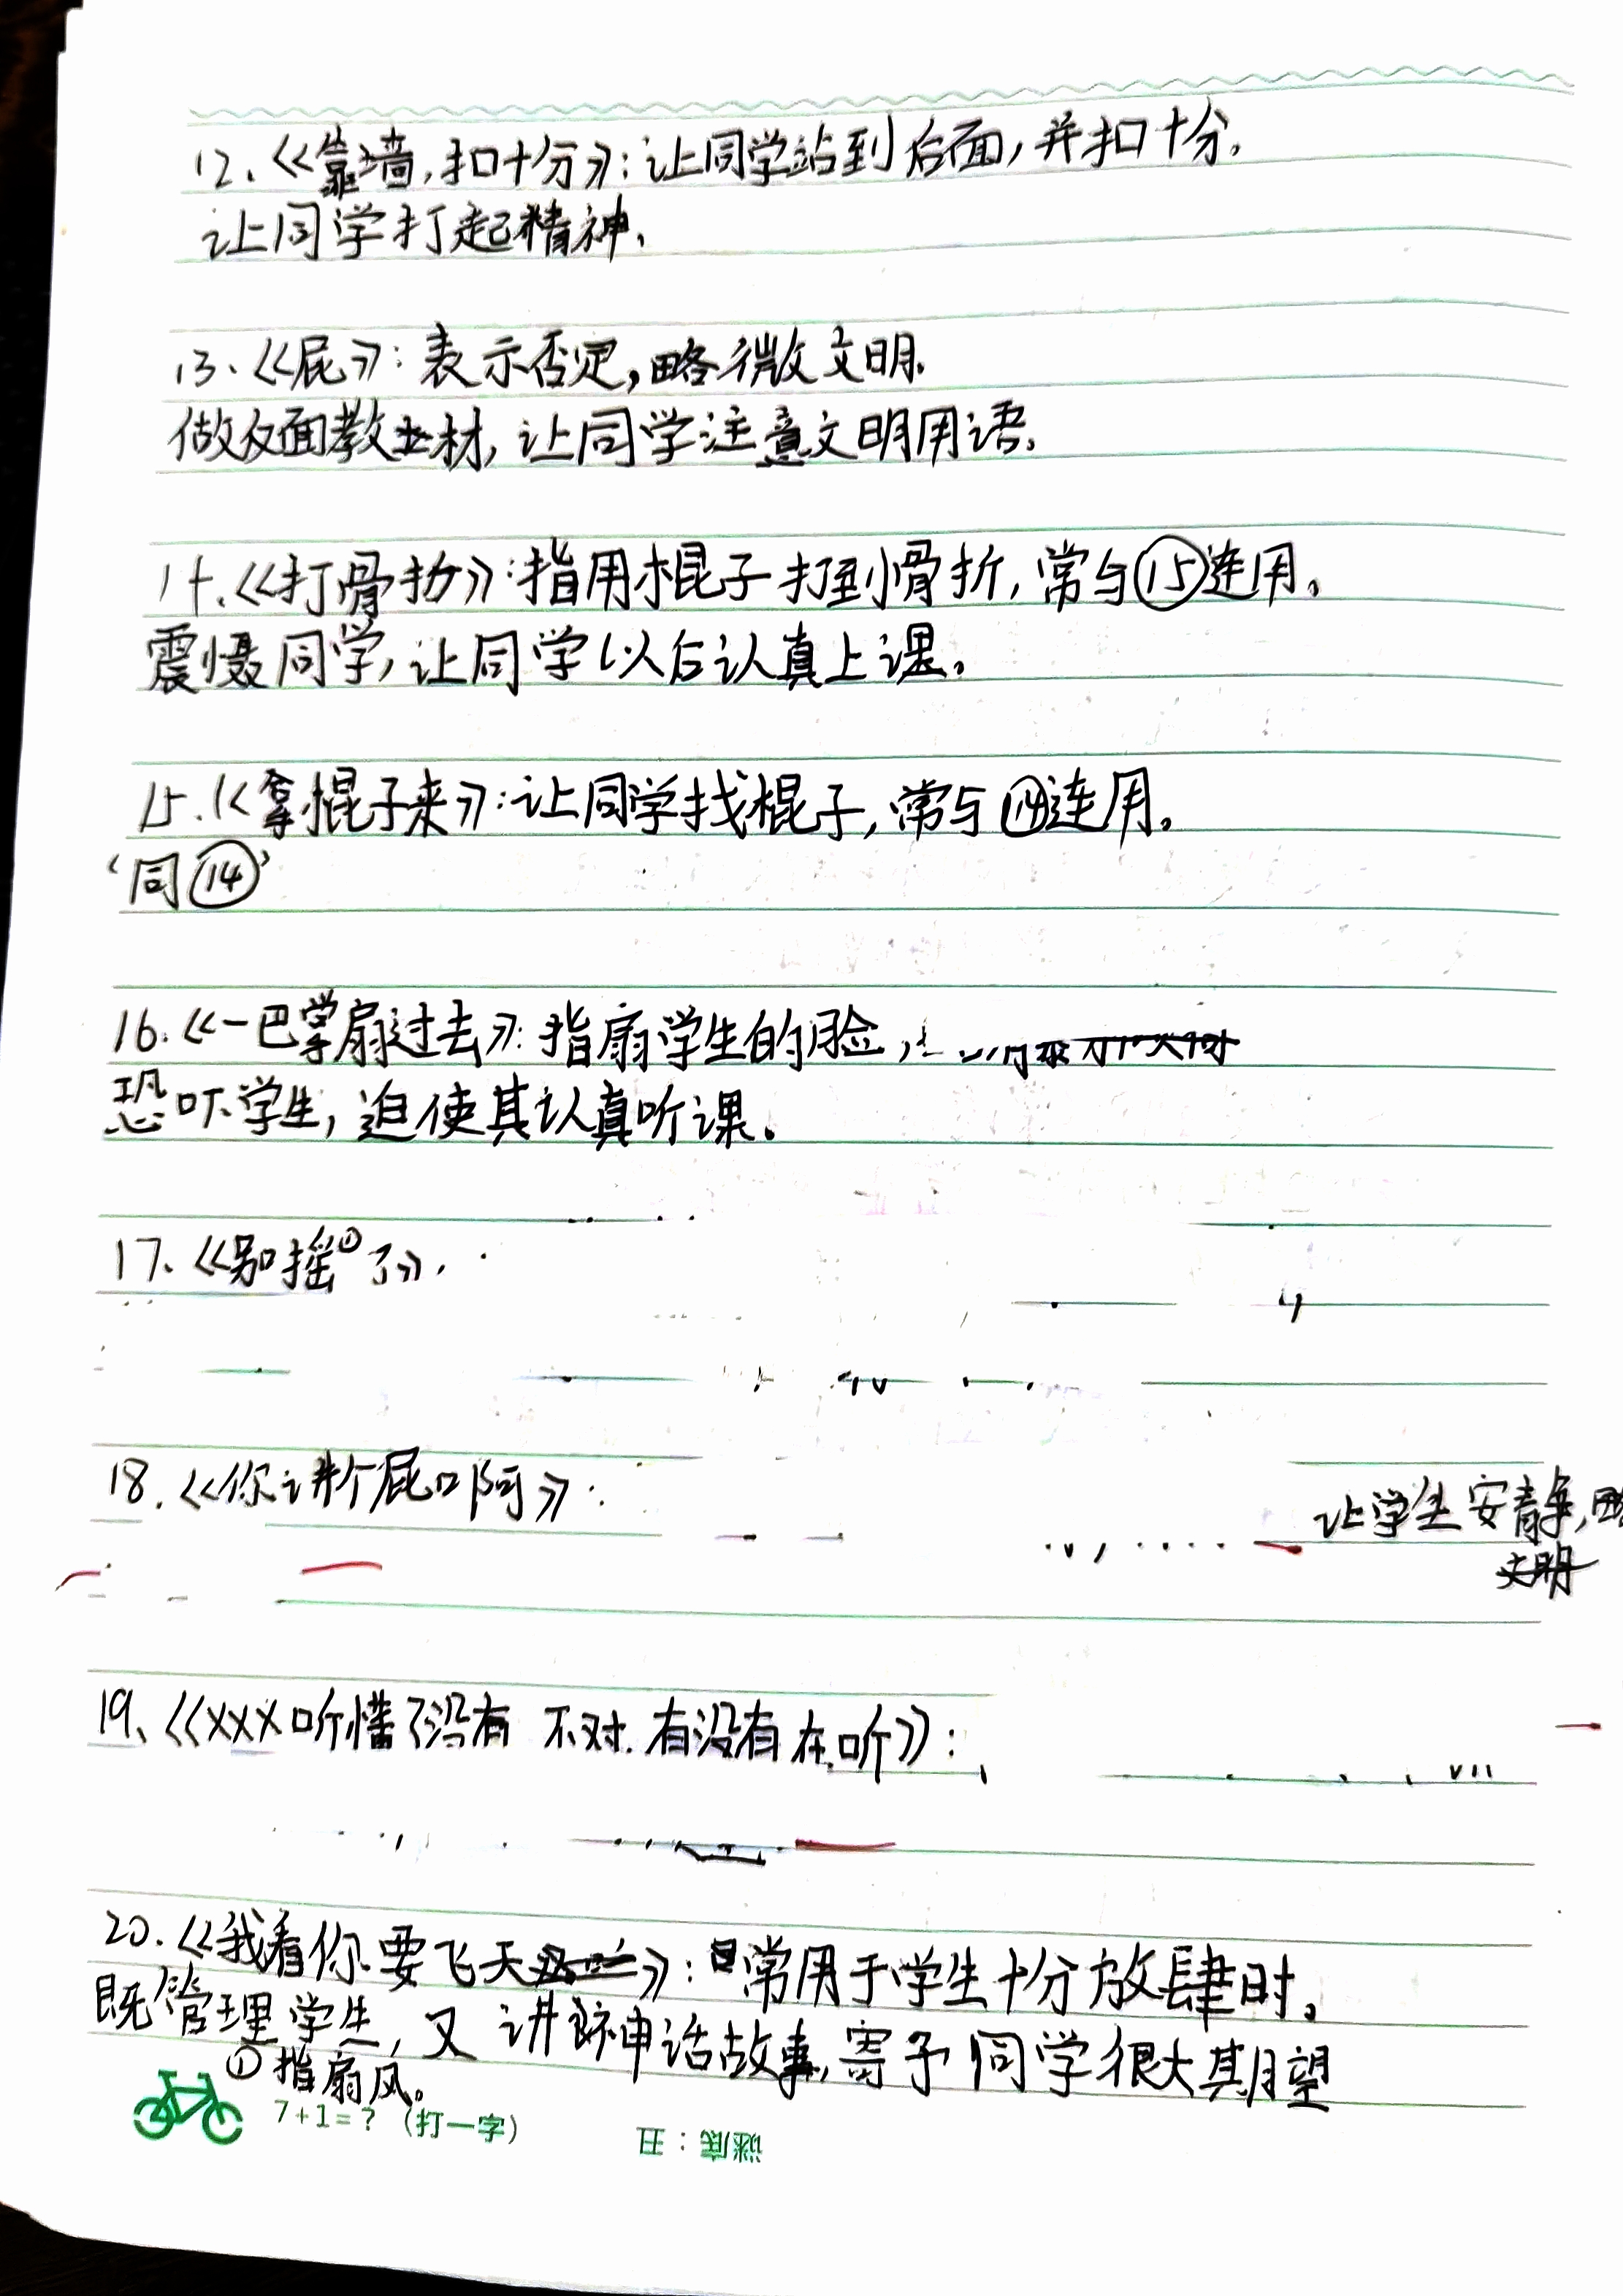 12.《靠墙,扣十分》:让同学站到后面,并扣十分.
让同学打起精神.
13.《屁》:表示否定,略微文明.
做反面教材,让同学注意文明用语.
14.《打骨折》:指用棍子打到骨折,常与⑮连用。
震慑同学,让同学以后认真上课。
15.《拿棍子来》:让同学找棍子,常与⑭连用。
‘同⑭’
16.《一巴掌扇过去》:指扇学生的脸,
恐吓学生,迫使其认真听课。
17.《别摇①了》.
18.《你讲个屁啊》:
让学生安静,略
文明
19.《XXX听懂了没有 不对.有没有在听》:
20.《我看你要飞天》:常用于学生十分放肆时。
既管理学生,又讲神话故事,寄予同学很大期望
①指扇风。
7+1=?(打一字)
谜底:日